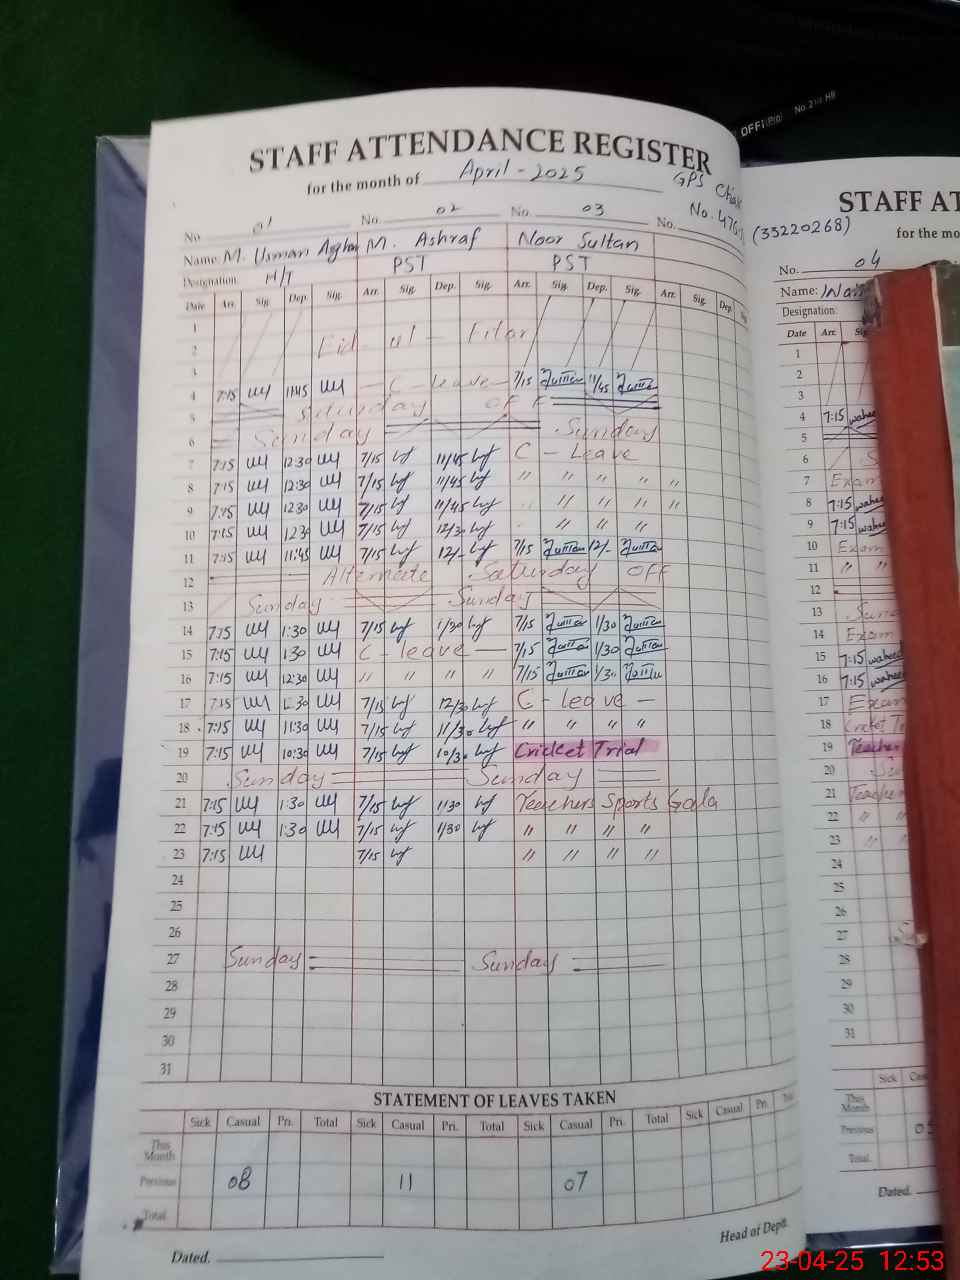 OFFi(Pro) No. 2 1/2 HB
STAFF ATTENDANCE REGISTER
for the month of April - 2025
GPS Chak
No. 476
No. 01 No. 02 No. 03 No.
Name: M. Usman Asghar M. Ashraf Noor Sultan
Designation: H/T PST PST
Date Arr. Sig. Dep. Sig. Arr. Sig. Dep. Sig. Arr. Sig. Dep. Sig. Arr. Sig. Dep. Sig.
1
2 Eid - ul - Fitar
3
4 7:15 11:45 C - leave 7/15 11/45
5 Saturday OFF
6 Sunday Sunday
7 7:15 12:30 7/15 11/45 C - Leave
8 7:15 12:30 7/15 11/45 " " " " "
9 7:15 12:30 7/15 11/45 " " " "
10 7:15 12:30 7/15 12/30 " " "
11 7:15 11:45 7/15 12/- 7/15 12/-
12 Alternate Saturday OFF
13 Sunday Sunday
14 7:15 1:30 7/15 1/30 7/15 1/30
15 7:15 1:30 C - leave 7/15 1/30
16 7:15 12:30 " " " " 7/15 1/30
17 7:15 7/15 12/30 C - Leave -
18 7:15 11:30 7/15 11/30 " " " "
19 7:15 10:30 7/15 10/30 Cricket Trial
20 Sunday Sunday
21 7:15 1:30 7/15 1130 Teachers Sports Gala
22 7:15 1:30 7/15 1/30 " " " "
23 7:15 7/15 " " " "
24
25
26
27 Sunday Sunday
28
29
30
31
STATEMENT OF LEAVES TAKEN
Sick Casual Pri. Total Sick Casual Pri. Total Sick Casual Pri. Total Sick Casual Pri.
This Month
Previous 08 11 07
Total
Dated.
Head of Deptt.
STAFF AT
(33220268) for the mo
No. 04
Name:
Designation:
Date Arr.
1
2
3
4 7:15 waheed
5
6
7 Exam
8 7:15 waheed
9 7:15 waheed
10 Exam
11 " "
12
13
14 Exam
15 7:15 waheed
16 7:15 waheed
17 Exam
18 Cricket
19 Teacher
20
21 Teacher
22 " "
23 "
24
25
26
27
28
29
30
31
Sick
This Month
Previous
Total
Dated.
23-04-25 12:53